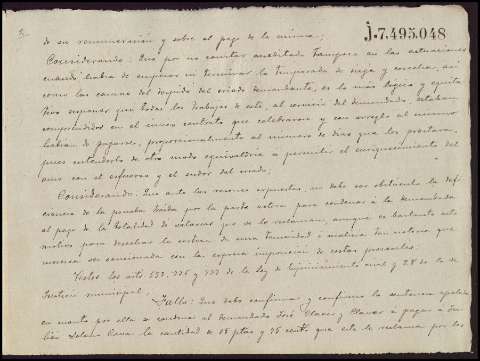 j.7.495.048
de su remuneración y sobre el pago de la misma;
Considerando: Que por no constar acreditado tampoco en las actuaciones
cuando había de empezar ni terminar la temporada de siega y cosecha, así
como las causas del despido del criado demandante, es lo más lógico y equita
tivo suponer que todos los trabajos de este, al servicio del demandado, estaban
comprendidos en el único contrato que celebraron y con arreglo al mismo
habían de pagarse, proporcionalmente al número de días que los prestara,
pues entenderlo de otro modo equivaldría a permitir el enriquecimiento del
amo con el esfuerzo y el sudor del criado;
Considerando: Que ante las razones expuestas, no debe ser obstáculo la defi
ciencia de la prueba traída por la parte actora para condenar a la demandada
al pago de la totalidad de salarios que se le reclaman, aunque es bastante este
motivo para desechar la existencia de una temeridad o malicia tan notoria que
merezca ser sancionada con la expresa imposición de costas procesales.
Vistos los arts 533, 736 y 737 de la Ley de Enjuiciamiento civil y 28 de la de
Justicia municipal;
Fallo: Que debo confirmar y confirmo la sentencia apelada
en cuanto por ella se condena al demandado José Claver y Claver a pagar a Ju-
lián la cantidad de 58 ptas y 75 cents. que este le reclama por los